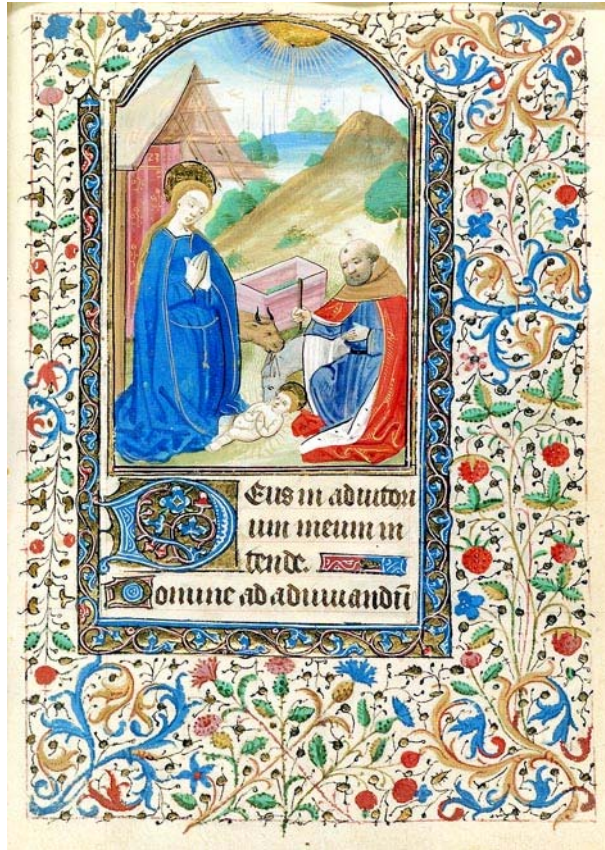 Deus in adiutori
um meum in
tende.
Domine ad adiuuandū